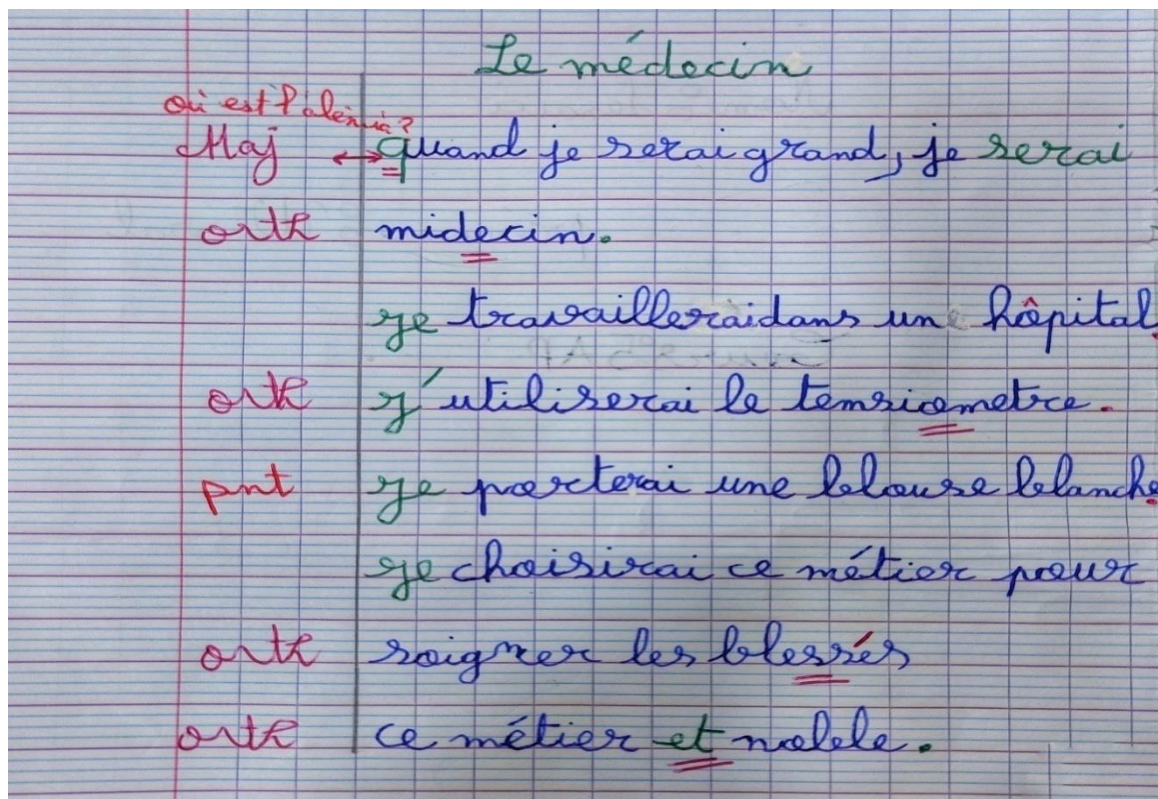 Le médecin
où est l'alénia?
Maj ↔ quand je serai grand, je serai
orth midecin.
je travailleraidans un hôpital.
orth j'utiliserai le tensiometre.
pnt je porterai une blouse blanche.
je choisirai ce métier pour
orth soigner les blessés
orth ce métier et noble.